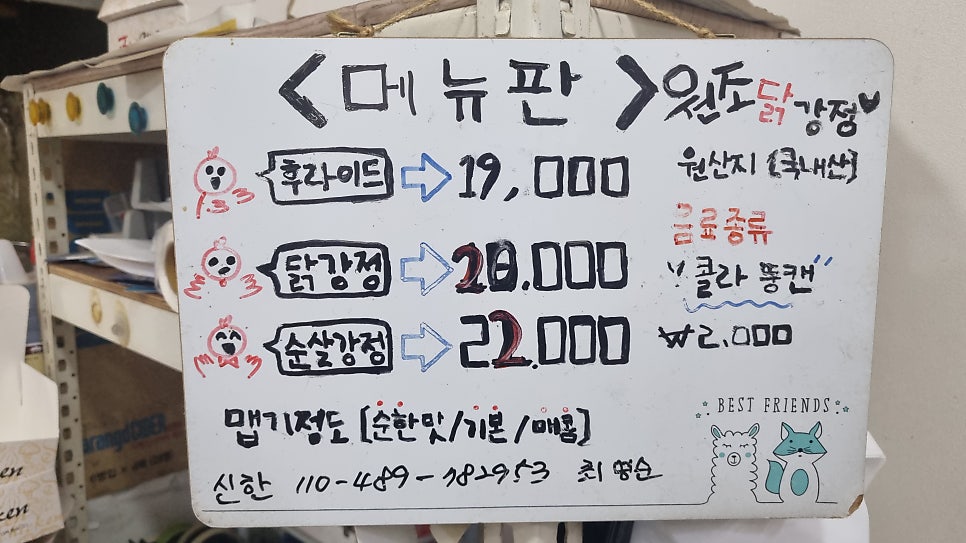 <메뉴판> 원조 닭강정
후라이드 19,000
원산지 [국내산]
음료종류
닭강정 20.000
"콜라 뚱캔"
순살강정 22.000
₩2.000
맵기정도 [순한맛/기본/매콤]
BEST FRIENDS
신한 110-489-782953 최